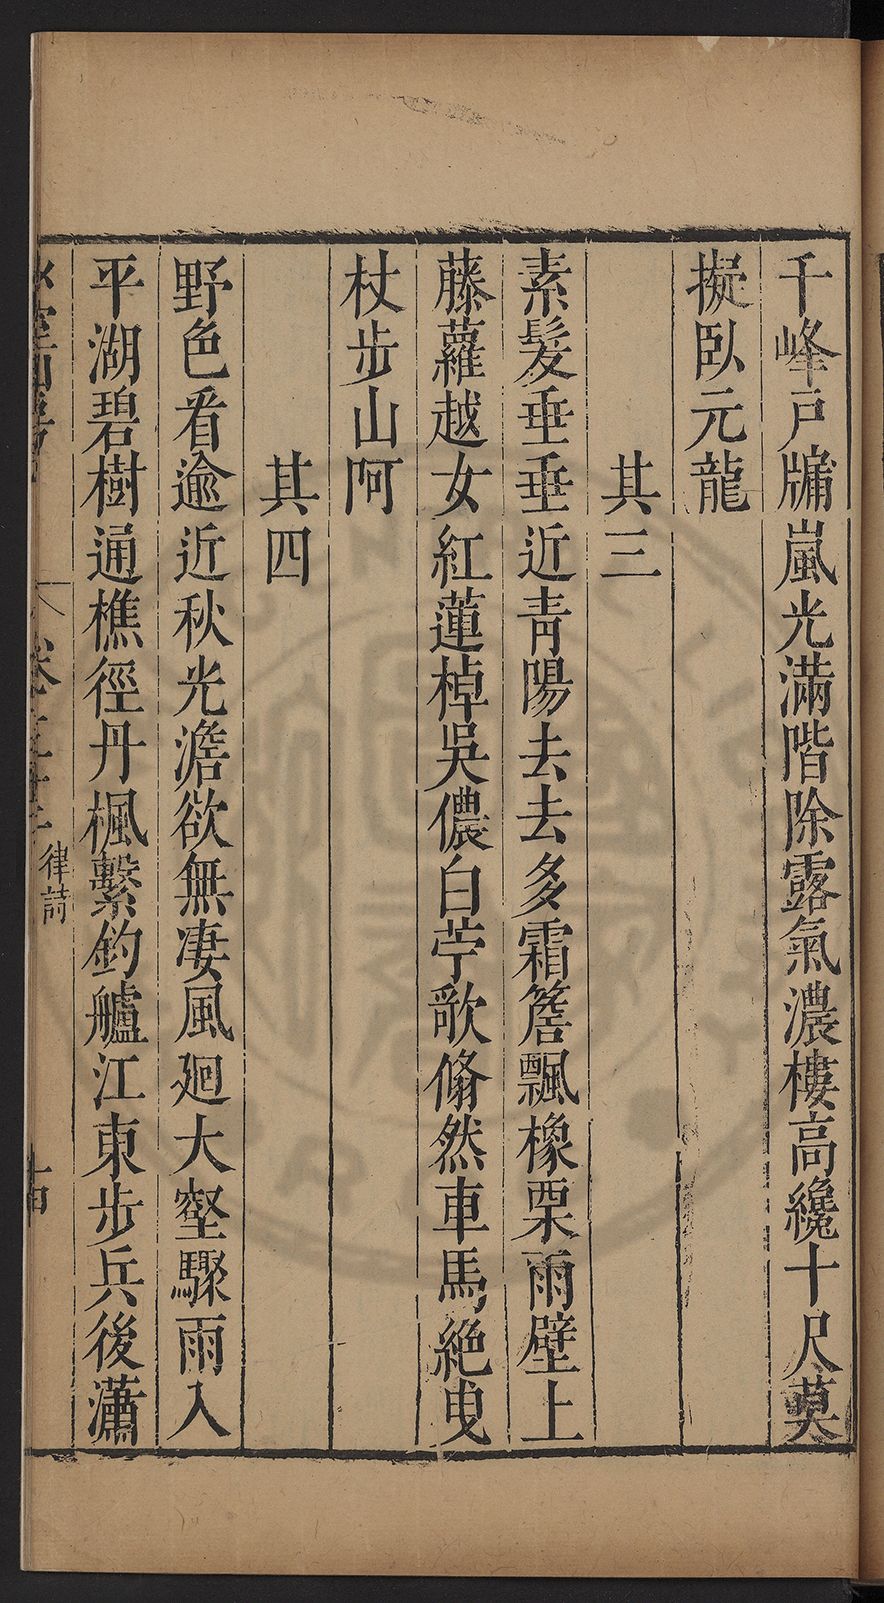 千峰戸牖嵐光滿階除露氣濃樓高纔十尺莫
擬臥元龍
其三
素髮垂垂近青陽去去多霜簷飄橡栗雨壁上
藤蘿越女紅蓮棹吳儂白苧歌翛然車馬絶曳
杖步山阿
其四
野色看逾近秋光澹欲無凄風廻大壑驟雨入
平湖碧樹通樵徑丹楓繫釣艫江東步兵後瀟
律詩